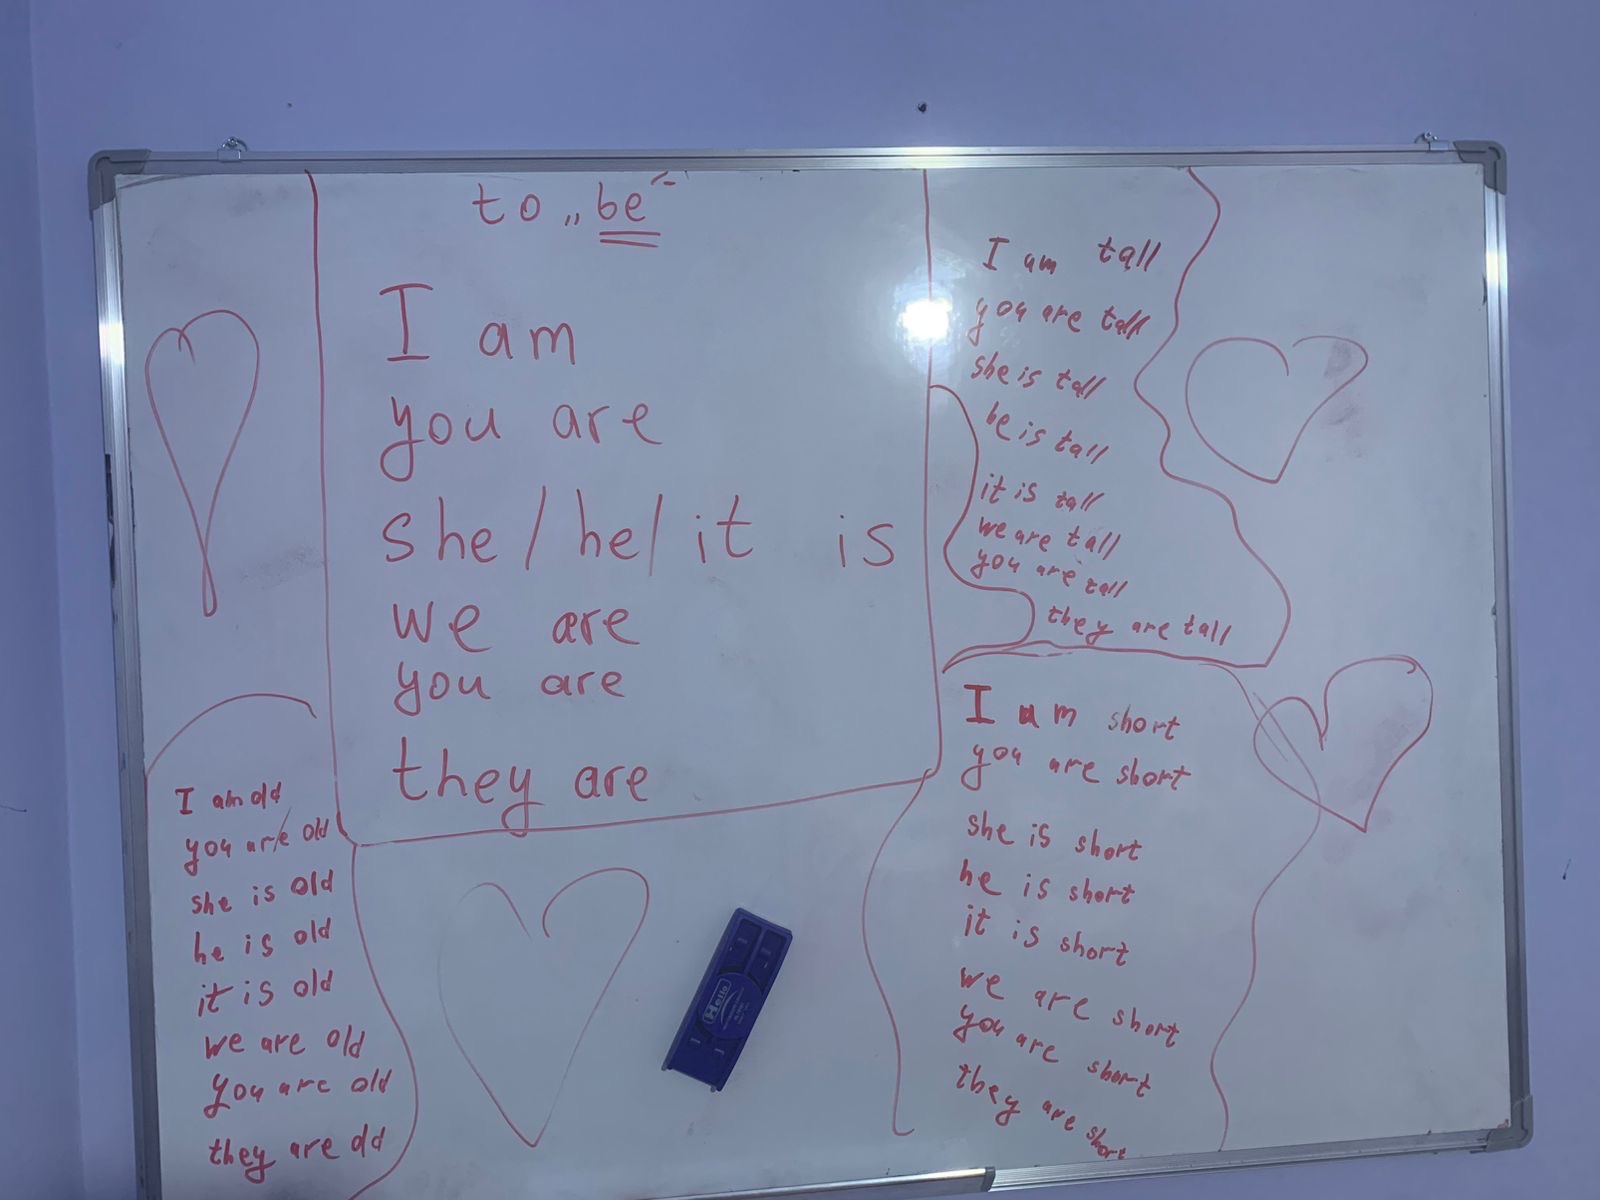 to „be"
I am
you are
she / he / it is
we are
you are
they are
I am tall
you are tall
she is tall
he is tall
it is tall
we are tall
you are tall
they are tall
I am short
you are short
she is short
he is short
it is short
we are short
you are short
they are short
I am old
you are old
she is old
he is old
it is old
we are old
you are old
they are old
Hello